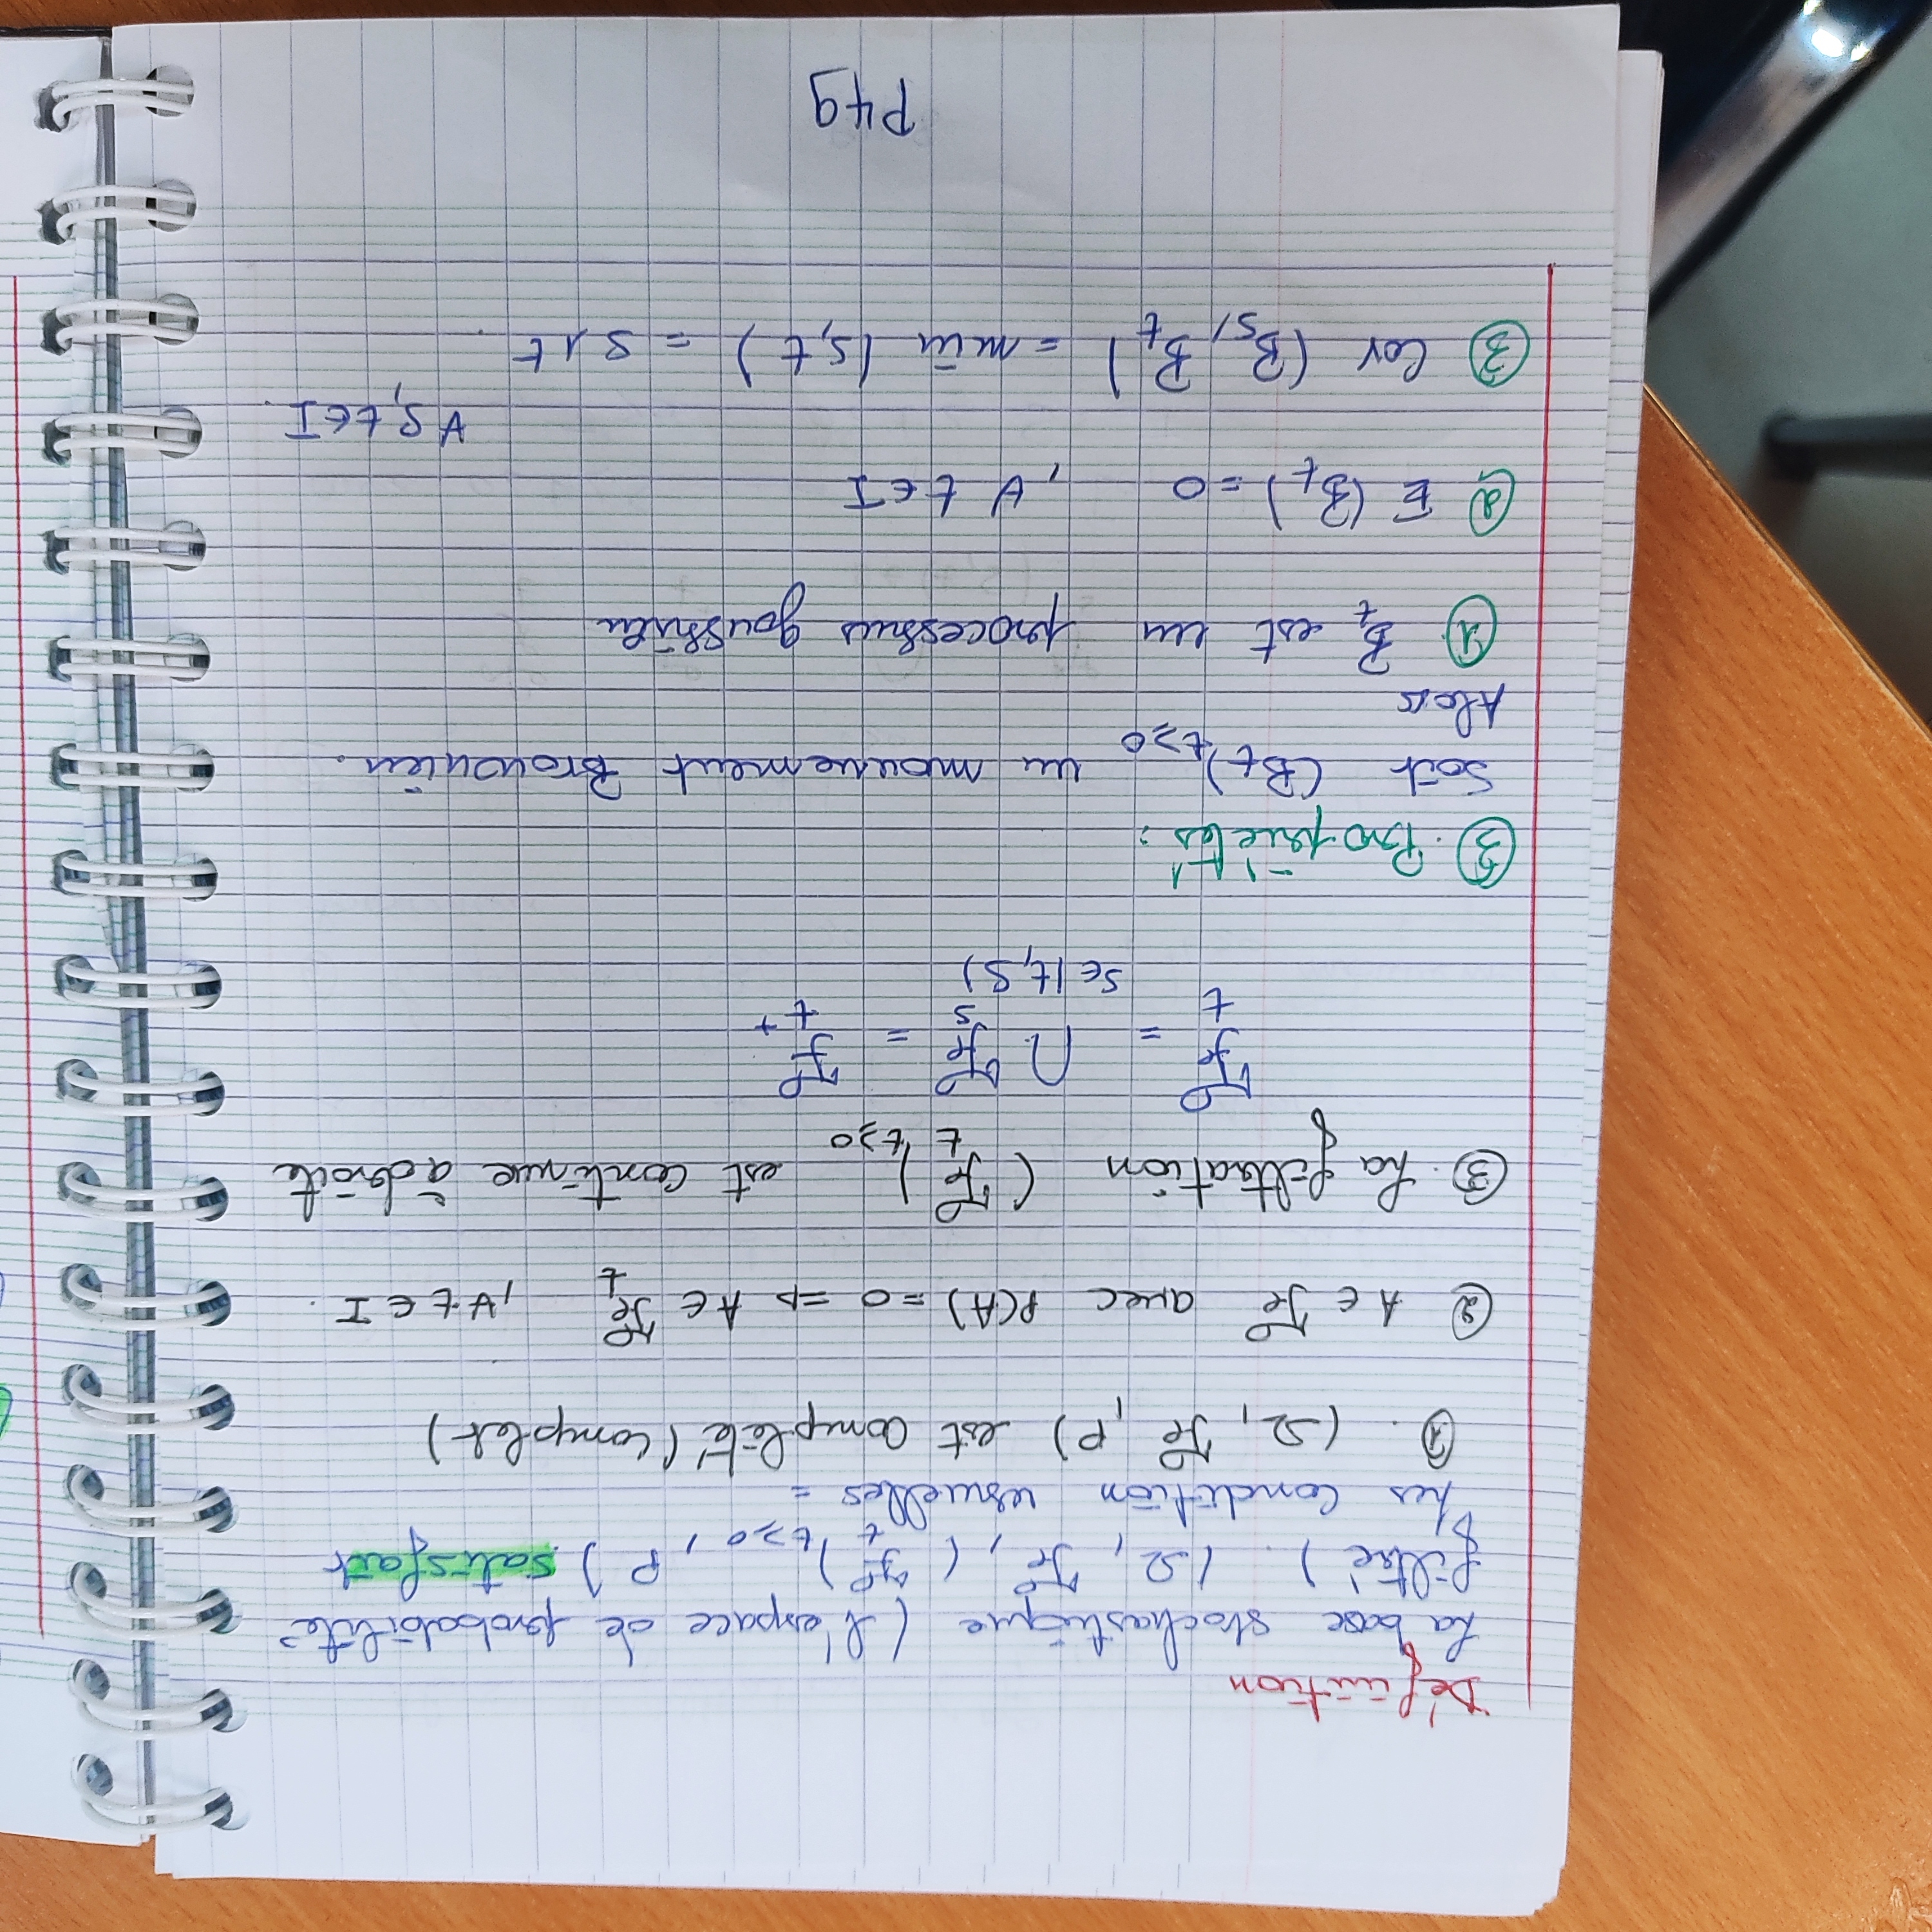 Définition
La base stochastique (l'espace de probabilité
filtré). (Ω, ℱ, (ℱ_t)_{t≥0}, P) satisfait
les condition usuelles =
①. (Ω, ℱ, P) est complété (complet)
② A ∈ ℱ avec P(A) = 0 => A ∈ ℱ_t , ∀ t ∈ I.
③. La filtration (ℱ_t)_{t≥0} est continue à droite
ℱ_t = ∩ ℱ_s = ℱ_{t+}
s∈(t,S)
③. Propriétés :
Soit (B_t)_{t≥0} un mouvement Brownien.
Alors
① B_t est un processus goussien
② E(B_t) = 0 , ∀ t ∈ I
∀ s, t ∈ I.
③ Cov (B_s, B_t) = min (s,t) = s ∧ t.
P49